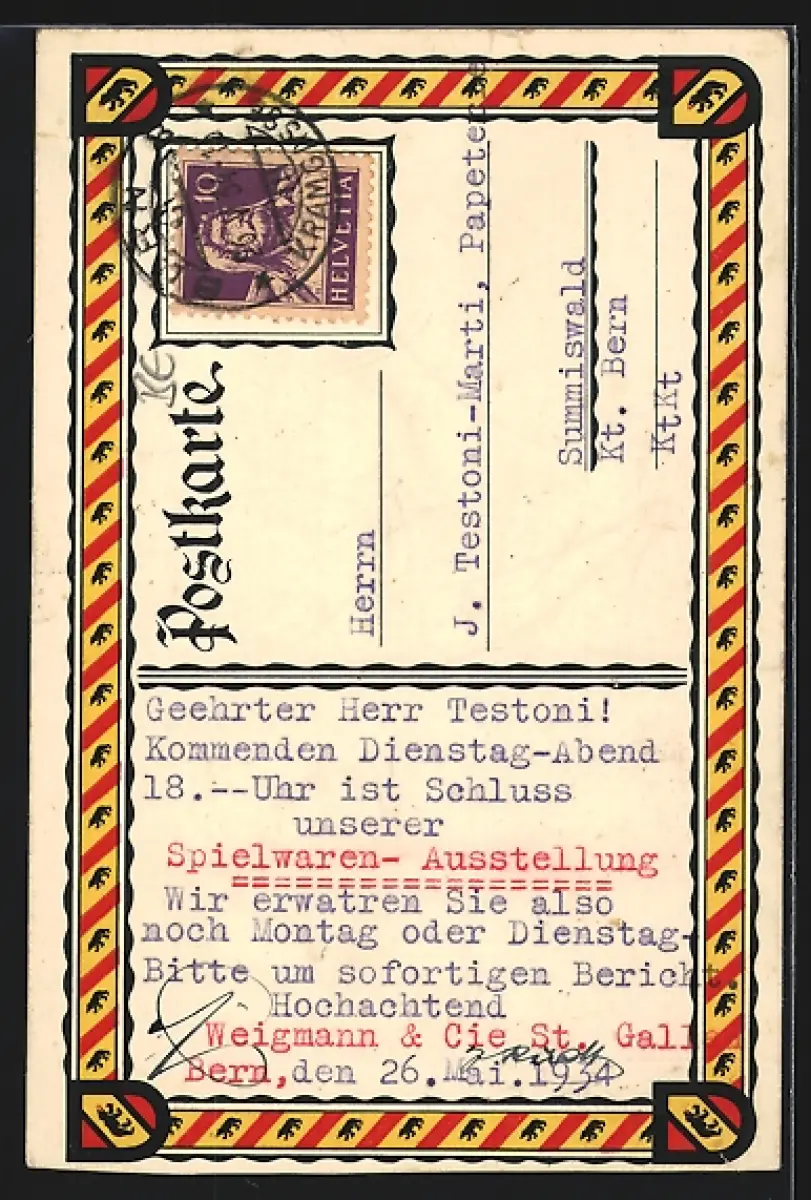 10
HELVETIA
BERN
KRAMGASSE
Postkarte.
Herrn
J. Testoni-Marti, Papeterie
Summiswald
Kt. Bern
KtKt
Geehrter Herr Testoni!
Kommenden Dienstag-Abend
18.--Uhr ist Schluss
unserer
Spielwaren- Ausstellung
==================
Wir erwatren Sie also
noch Montag oder Dienstag-
Bitte um sofortigen Bericht.
Hochachtend
Weigmann & Cie St. Gallen
Bern,den 26.Mai.1934